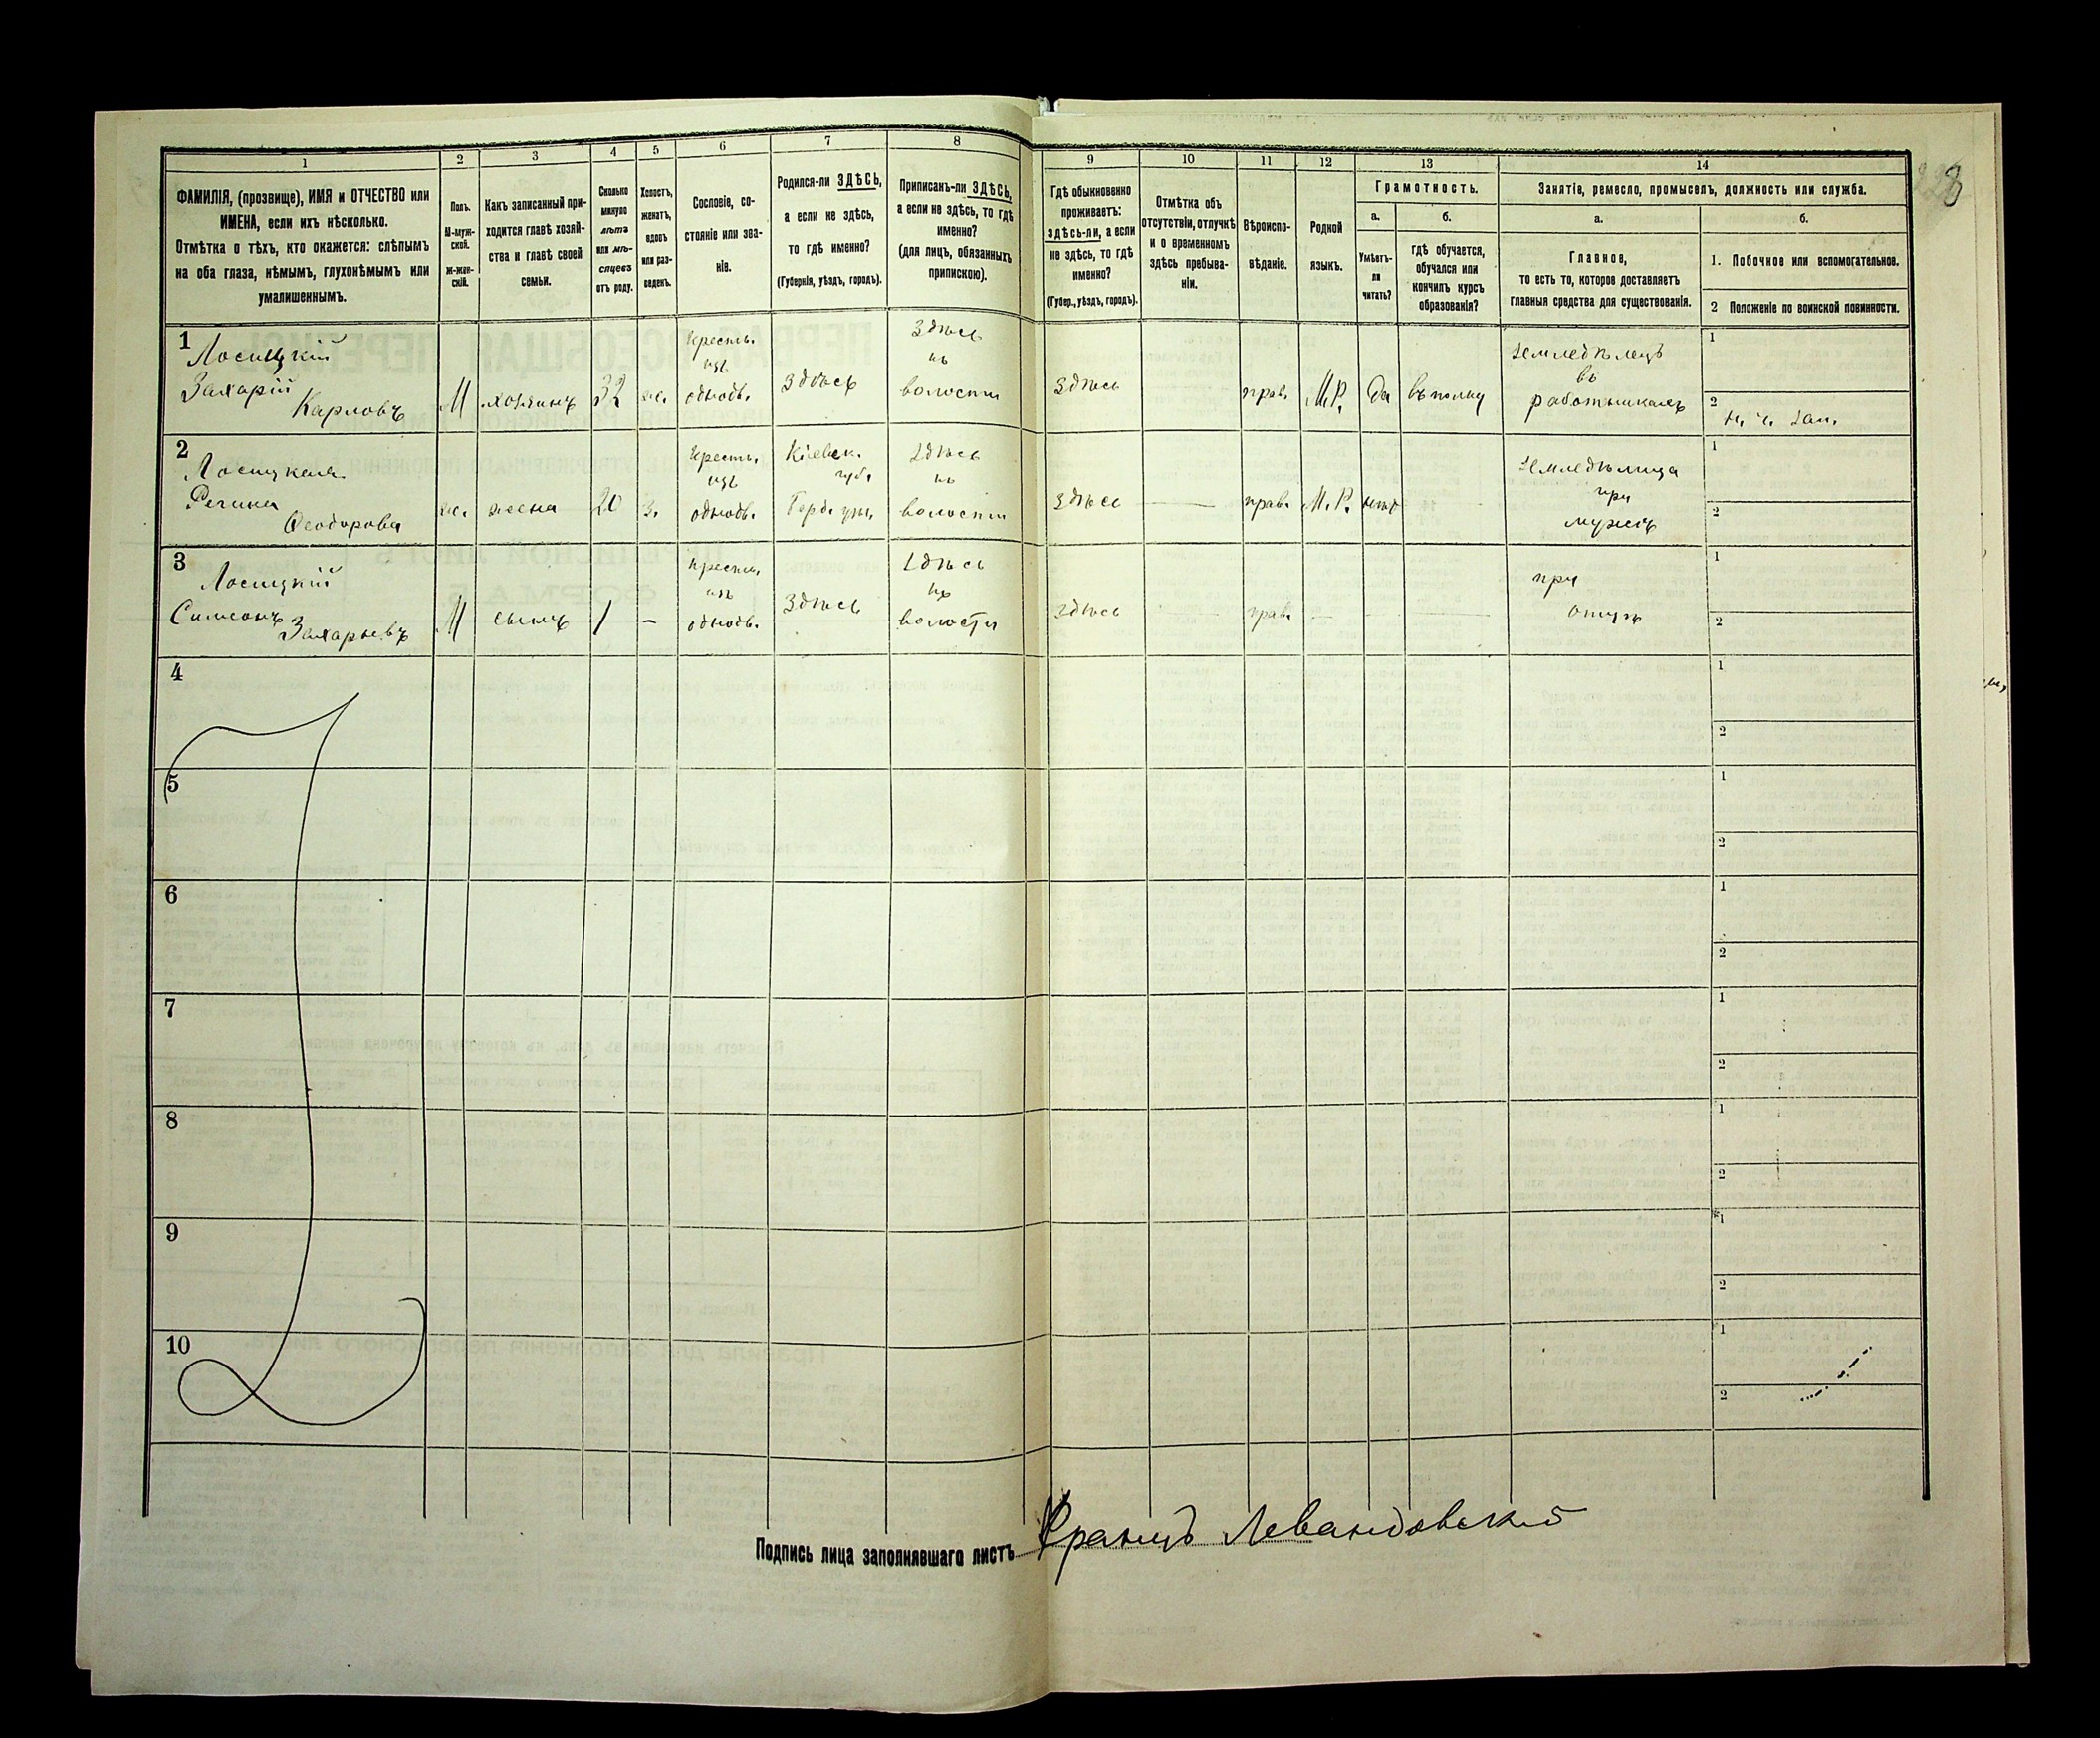 1
2
3
4
5
6
7
8
9
10
11
12
13
14
ФАМИЛІЯ, (прозвище), ИМЯ и ОТЧЕСТВО или
ИМЕНА, если ихъ нѣсколько.
Отмѣтка о тѣхъ, кто окажется: слѣпымъ
на оба глаза, нѣмымъ, глухонѣмымъ или
умалишеннымъ.
Полъ.
М-муж-
ской.
ж-жен-
скій.
Какъ записанный при-
ходится главѣ хозяй-
ства и главѣ своей
семьи.
Сколько
минуло
лѣтъ
или мѣ-
сяцевъ
отъ роду.
Холостъ,
женатъ,
вдовъ
или раз-
веденъ.
Сословіе, со-
стояніе или зва-
ніе.
Родился-ли ЗДѢСЬ,
а если не здѣсь,
то гдѣ именно?
(Губернія, уѣздъ, городъ).
Приписанъ-ли ЗДѢСЬ,
а если не здѣсь, то гдѣ
именно?
(для лицъ, обязанныхъ
припискою).
Гдѣ обыкновенно
проживаетъ:
здѣсь-ли, а если
не здѣсь, то гдѣ
именно?
(Губер., уѣздъ, городъ).
Отмѣтка объ
отсутствіи, отлучкѣ
и о временномъ
здѣсь пребыва-
ніи.
Вѣроиспо-
вѣданіе.
Родной
языкъ.
Грамотность.
а.
б.
Умѣетъ-
ли
читать?
гдѣ обучается,
обучался или
кончилъ курсъ
образованія?
Занятіе, ремесло, промыселъ, должность или служба.
а.
б.
Главное,
то есть то, которое доставляетъ
главныя средства для существованія.
1. Побочное или вспомогательное.
2 Положеніе по воинской повинности.
1
Лосицкій
Захарій
Карловъ
М
хозяинъ
32
ж.
Кресть.
изъ
однодв.
Здѣсь
Здѣсь
въ
волости
Здѣсь
прав.
М.Р.
Да
въ полку
Земледѣлецъ
въ
работникахъ
1
2
н. ч. зап.
2
Лосицкая
Регина
Ѳеодорова
ж.
жена
20
з.
Кресть.
изъ
однодв.
Кіевск.
губ.
Берд. уѣз.
Здѣсь
въ
волости
Здѣсь
прав.
М.Р.
нѣтъ
Земледѣлица
при
мужѣ
1
2
3
Лосицкій
Симеонъ
Захарьевъ
М
сынъ
1
–
Кресть.
изъ
однодв.
Здѣсь
Здѣсь
въ
волости
здѣсь
прав.
при
отцѣ
1
2
4
1
2
5
1
2
6
1
2
7
1
2
8
1
2
9
1
2
10
1
2
Подпись лица заполнявшаго листъ Францъ Левандовскій